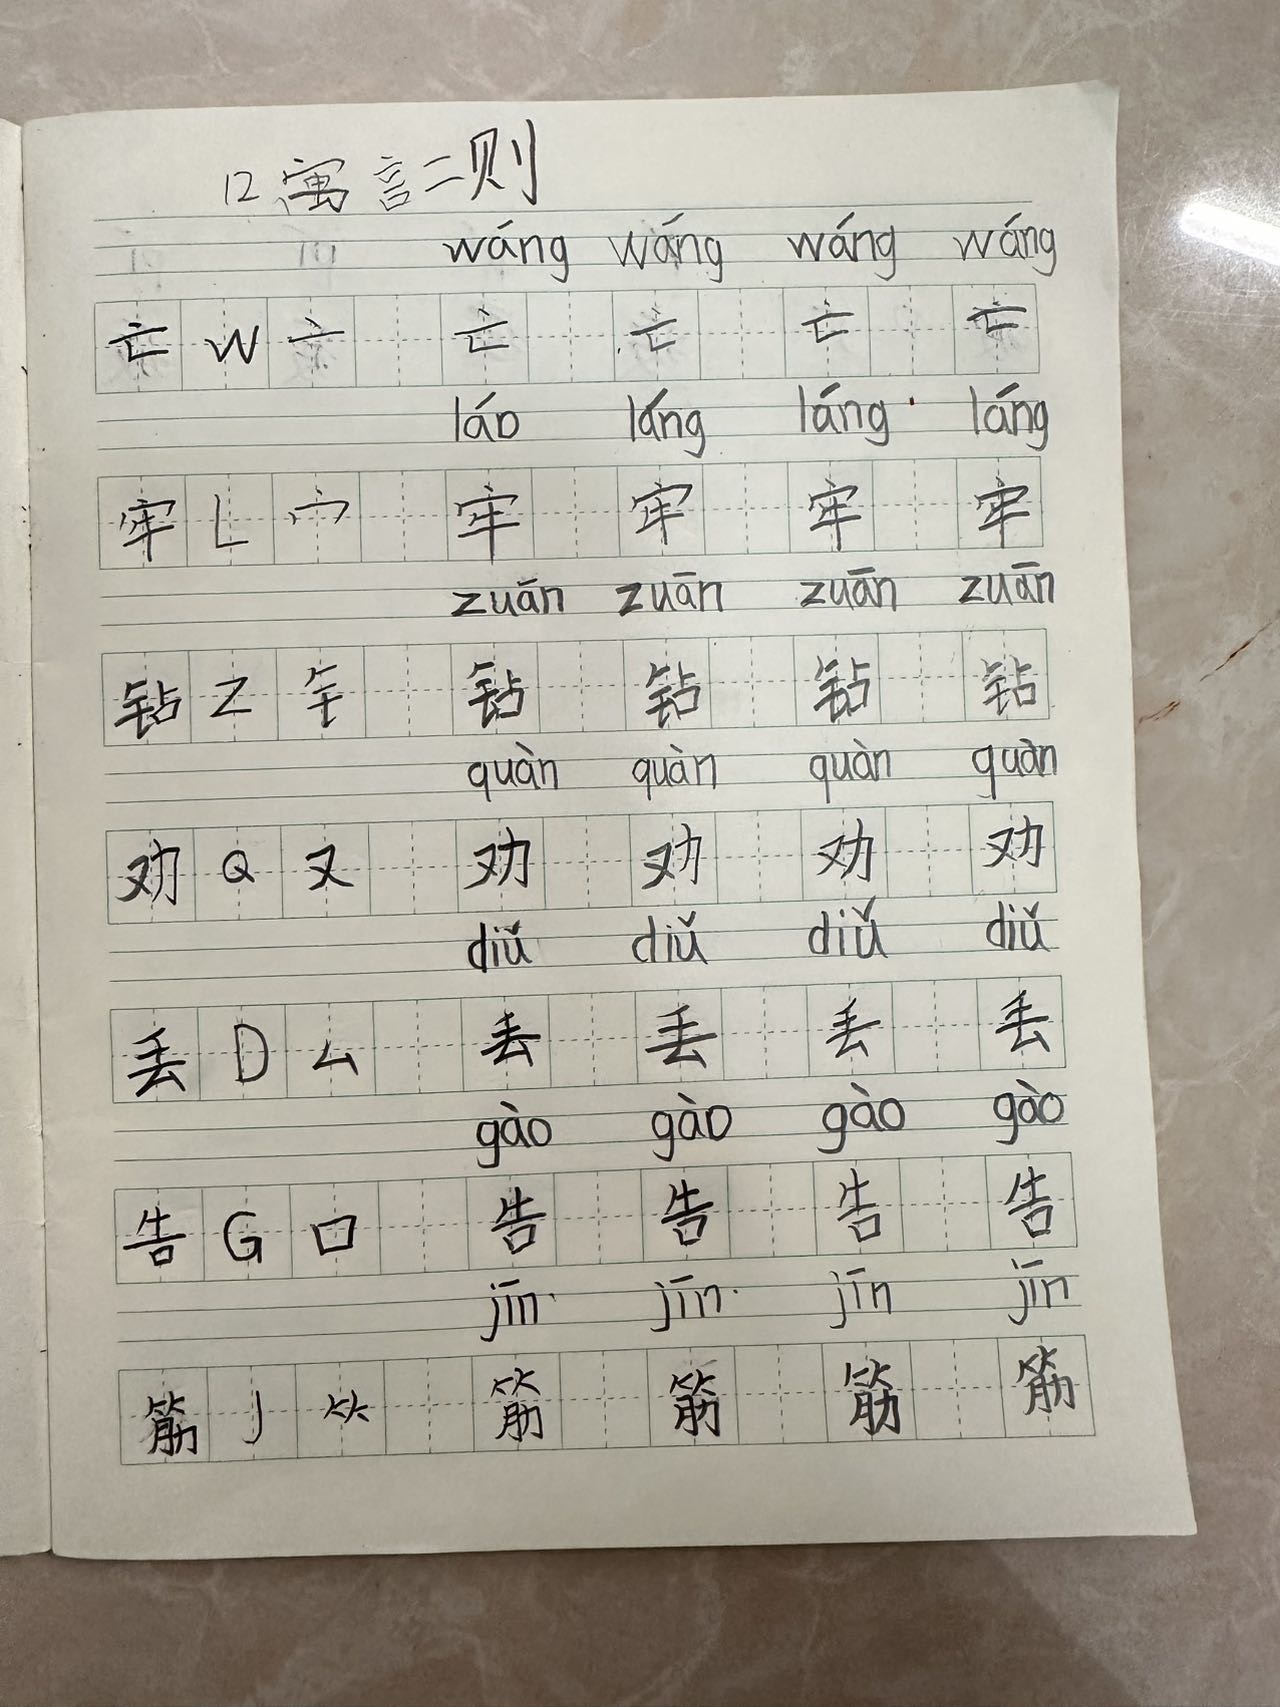 12 寓言二则
wáng wáng wáng wáng
亡 W 亠 亡 亡 亡 亡
láo láng láng láng
牢 L 宀 牢 牢 牢 牢
zuān zuān zuān zuān
钻 Z 钅 钻 钻 钻 钻
quàn quàn quàn quàn
劝 Q 又 劝 劝 劝 劝
diǔ diǔ diǔ diǔ
丢 D 厶 丢 丢 丢 丢
gào gào gào gào
告 G 口 告 告 告 告
jīn jīn jīn jīn
筋 J ⺮ 筋 筋 筋 筋